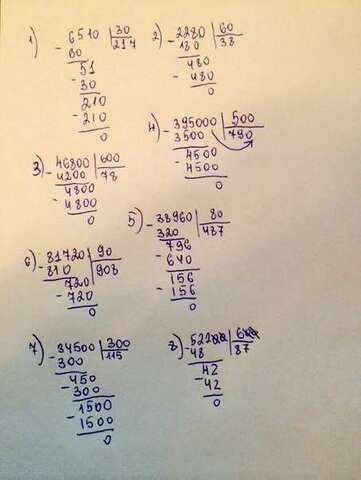 1) - 6510 | 30
60 | 217
51
- 30
210
- 210
0
2) - 2280 | 60
180 | 38
480
- 480
0
3) - 46800 | 600
4200 | 78
4800
- 4800
0
4) - 395000 | 500
3500 | 790
4500
- 4500
0
5) - 38960 | 80
320 | 487
796
- 640
156
- 156
0
6) - 81720 | 90
810 | 908
720
- 720
0
7) - 34500 | 300
300 | 115
450
- 300
1500
- 1500
0
8) - 52200 | 600
48 | 87
42
- 42
0